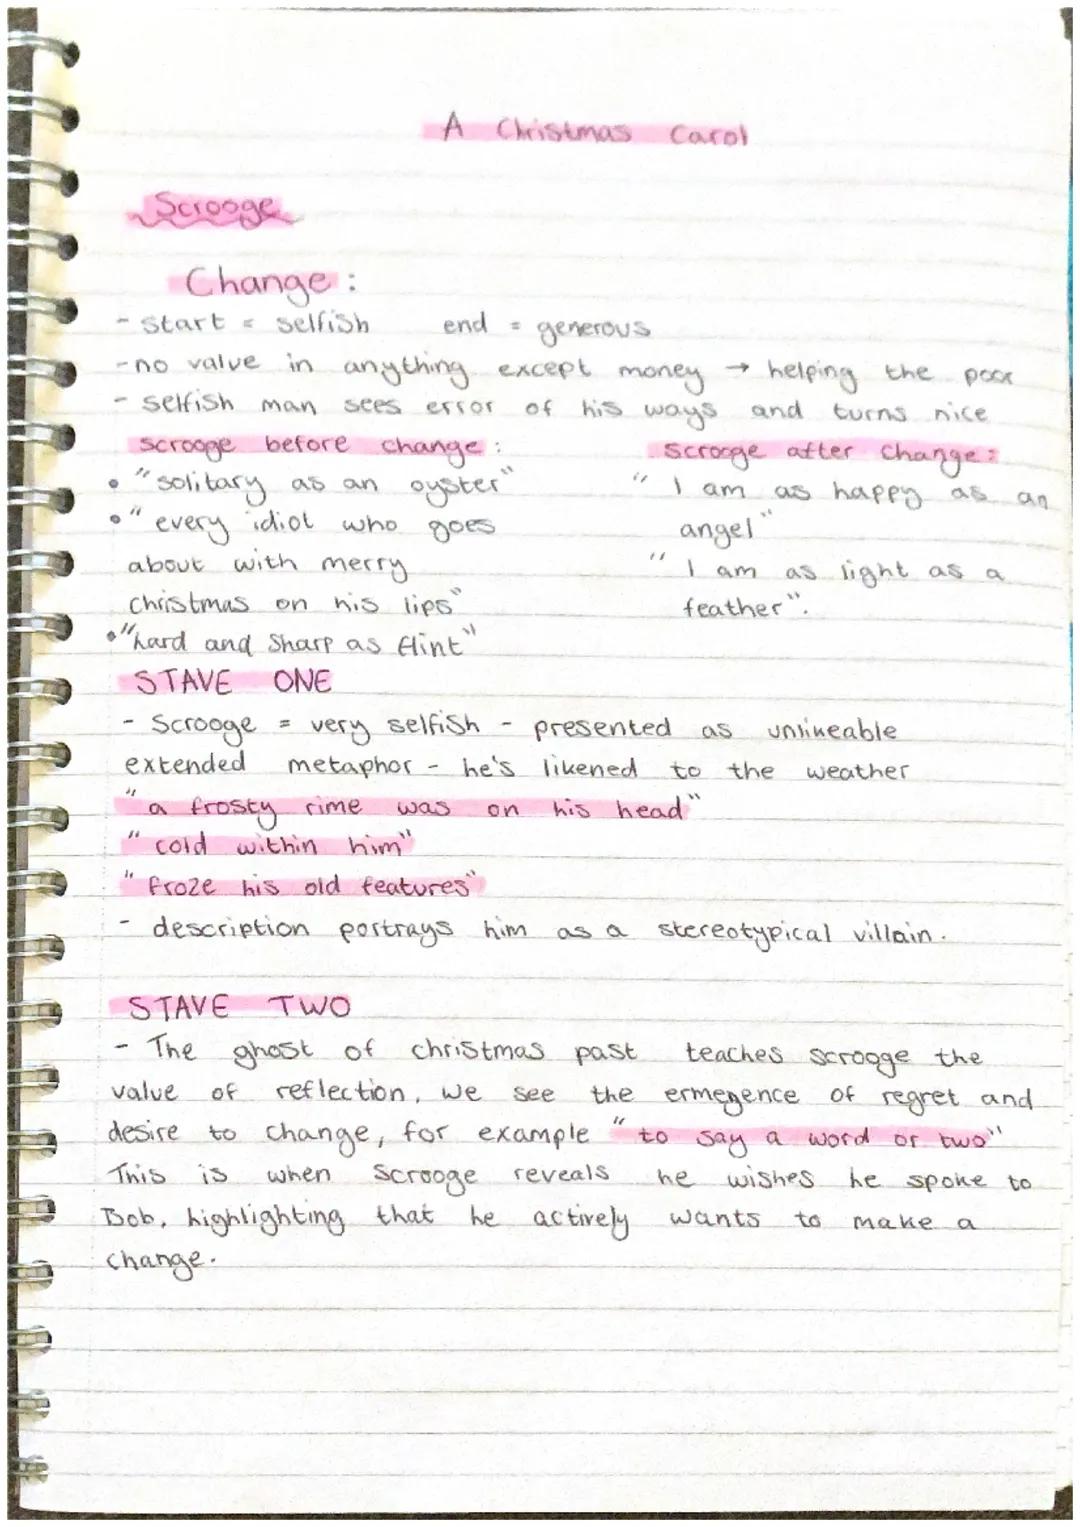 A Christmas Carol
Scrooge
Change :
- start = selfish end = generous
- no value in anything except money → helping the poor
- selfish man sees error of his ways and turns nice
scrooge before change : Scrooge after change :
• "solitary as an oyster" " I am as happy as an
• " every idiot who goes angel"
about with merry " I am as light as a
christmas on his lips" feather".
• "hard and sharp as flint"
STAVE ONE
- Scrooge = very selfish - presented as unlikeable
extended metaphor - he's likened to the weather
" a frosty rime was on his head"
" cold within him"
" froze his old features"
- description portrays him as a stereotypical villain.
STAVE TWO
- The ghost of christmas past teaches scrooge the
value of reflection, we see the ermegence of regret and
desire to change, for example " to say a word or two"
This is when Scrooge reveals he wishes he spoke to
Bob, highlighting that he actively wants to make a
change.